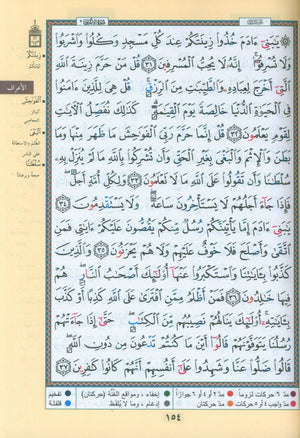 يَبَنِىٓ ءَادَمَ خُذُوا۟ زِينَتَكُمْ عِندَ كُلِّ مَسْجِدٍ وَكُلُوا۟ وَٱشْرَبُوا۟
وَلَا تُسْرِفُوٓا۟ إِنَّهُۥ لَا يُحِبُّ ٱلْمُسْرِفِينَ ٣١ قُلْ مَنْ حَرَّمَ زِينَةَ ٱللَّهِ
ٱلَّتِىٓ أَخْرَجَ لِعِبَادِهِۦ وَٱلطَّيِّبَٰتِ مِنَ ٱلرِّزْقِ قُلْ هِىَ لِلَّذِينَ ءَامَنُوا۟
فِى ٱلْحَيَوٰةِ ٱلدُّنْيَا خَالِصَةً يَوْمَ ٱلْقِيَٰمَةِ كَذَٰلِكَ نُفَصِّلُ ٱلْءَايَٰتِ
لِقَوْمٍ يَعْلَمُونَ ٣٢ قُلْ إِنَّمَا حَرَّمَ رَبِّىَ ٱلْفَوَٰحِشَ مَا ظَهَرَ مِنْهَا وَمَا
بَطَنَ وَٱلْإِثْمَ وَٱلْبَغْىَ بِغَيْرِ ٱلْحَقِّ وَأَن تُشْرِكُوا۟ بِٱللَّهِ مَا لَمْ يُنَزِّلْ بِهِۦ
سُلْطَٰنًا وَأَن تَقُولُوا۟ عَلَى ٱللَّهِ مَا لَا تَعْلَمُونَ ٣٣ وَلِكُلِّ أُمَّةٍ أَجَلٌ
فَإِذَا جَآءَ أَجَلُهُمْ لَا يَسْتَأْخِرُونَ سَاعَةً وَلَا يَسْتَقْدِمُونَ ٣٤
يَبَنِىٓ ءَادَمَ إِمَّا يَأْتِيَنَّكُمْ رُسُلٌ مِّنكُمْ يَقُصُّونَ عَلَيْكُمْ ءَايَٰتِى فَمَنِ
ٱتَّقَىٰ وَأَصْلَحَ فَلَا خَوْفٌ عَلَيْهِمْ وَلَا هُمْ يَحْزَنُونَ ٣٥ وَٱلَّذِينَ
كَذَّبُوا۟ بِـَٔايَٰتِنَا وَٱسْتَكْبَرُوا۟ عَنْهَآ أُو۟لَٰٓئِكَ أَصْحَٰبُ ٱلنَّارِ هُمْ
فِيهَا خَٰلِدُونَ ٣٦ فَمَنْ أَظْلَمُ مِمَّنِ ٱفْتَرَىٰ عَلَى ٱللَّهِ كَذِبًا أَوْ كَذَّبَ
بِـَٔايَٰتِهِۦٓ أُو۟لَٰٓئِكَ يَنَالُهُمْ نَصِيبُهُم مِّنَ ٱلْكِتَٰبِ حَتَّىٰٓ إِذَا جَآءَتْهُمْ
رُسُلُنَا يَتَوَفَّوْنَهُمْ قَالُوٓا۟ أَيْنَ مَا كُنتُمْ تَدْعُونَ مِن دُونِ ٱللَّهِ
قَالُوا۟ ضَلُّوا۟ عَنَّا وَشَهِدُوا۟ عَلَىٰٓ أَنفُسِهِمْ أَنَّهُمْ كَانُوا۟ كَٰفِرِينَ ٣٧
الأعراف
زِينَتَكُمْ
ثيابكم
ٱلْفَوَٰحِشَ
كبائر
المعاصي
ٱلْبَغْىَ
الظلم والاستطالة
على الناس
سُلْطَٰنًا
حجة وبرهانا
مدّ ٦ حركات لزوماً
مدّ ٢ أو ٤ أو ٦ جوازاً
إخفاء، ومواقع الغُنَّة (حركتان)
تفخيم
مدّ واجب ٤ أو ٥ حركات
مدّ حركتان
إدغام، وما لا يُلفظ
قلقلة
١٥٤